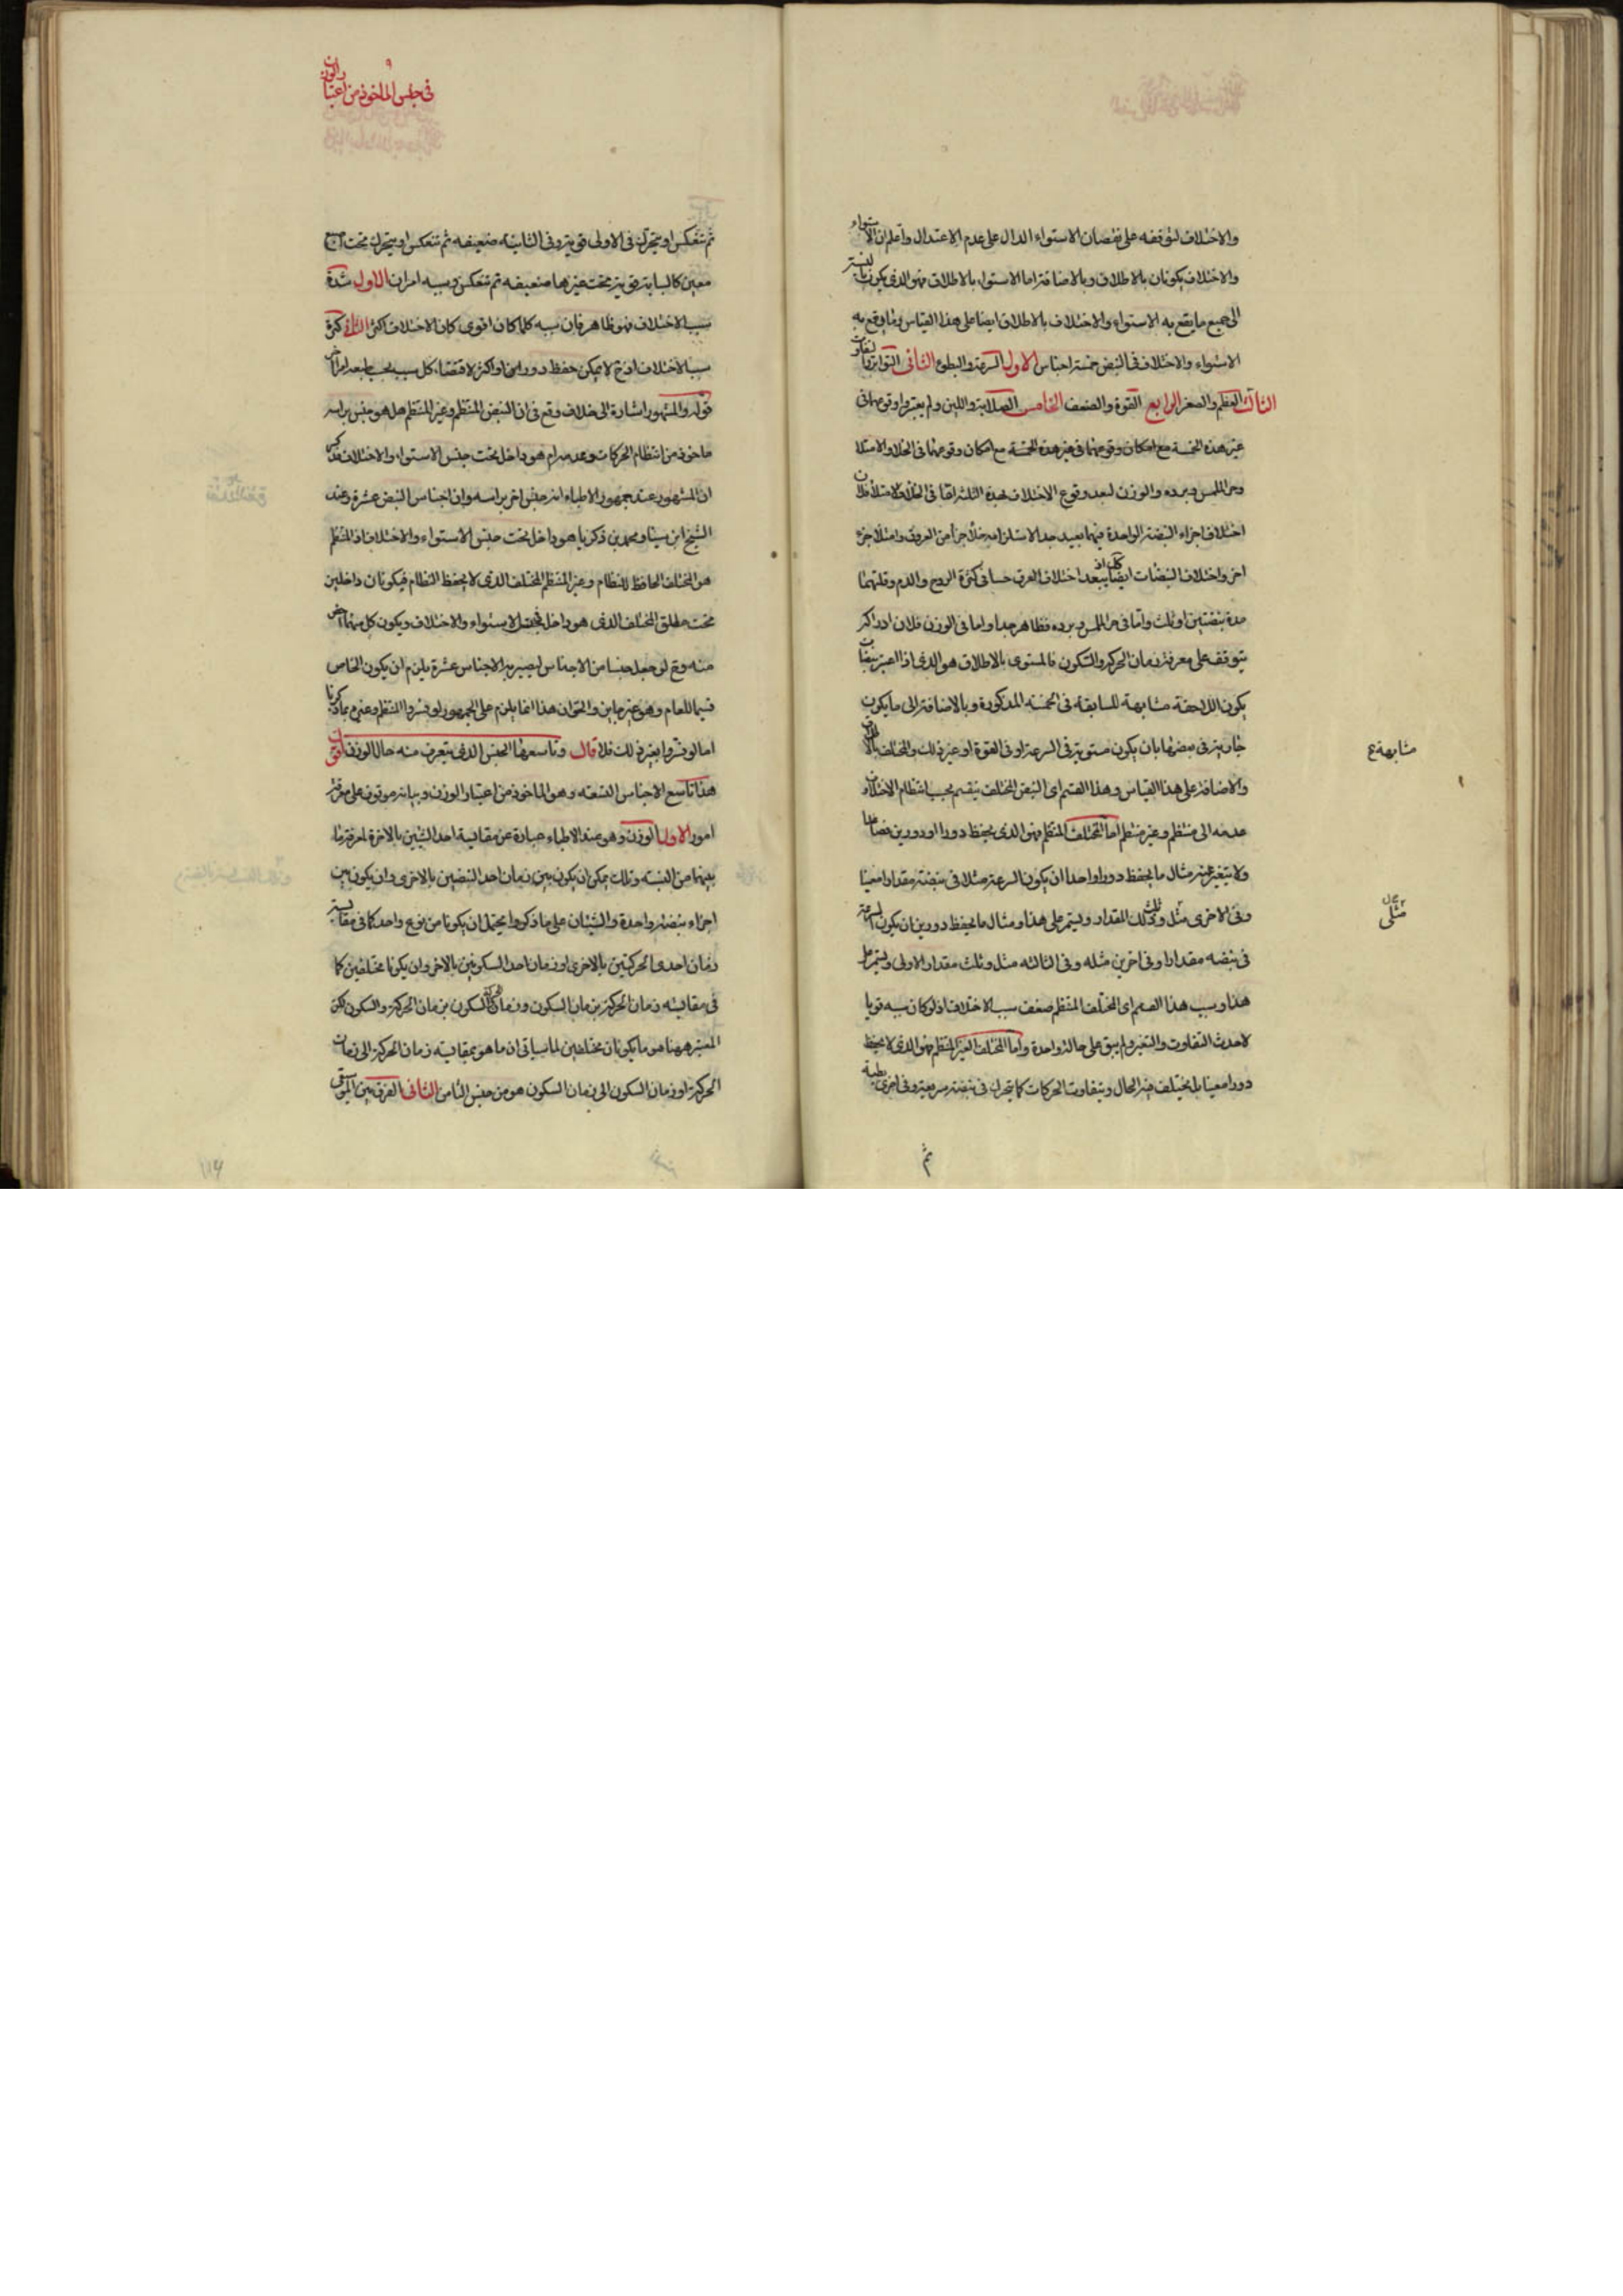 والاختلاف لتوقفه على نقصان الاستواء الدال على عدم الاعتدال واعلم ان الاستواء
والاختلاف يكونان بالاطلاق وبالاضافة اما الاستواء بالاطلاق فهو الذى يكون بالنسبة
الى جميع ما يقع به الاستواء والاختلاف بالاطلاق ايضا على هذا القياس وما وقع به
الاستواء والاختلاف فى النبض خمسة اجناس الاول السرعة والبطوء الثانى التواتر والتفاوت
الثالث العظم والصغر الرابع القوة والضعف الخامس الصلابة واللين ولم يعتبروا وقوعهما فى
غير هذه الخمسة مع امكان وقوعهما فى غير هذه الخمسة مع امكان وقوعهما فى الخلاء والامتلاء
وحر الملمس وبرده والوزن لبعد وقوع الاختلاف بهذه الثلثة اما فى الخلاء والامتلاء فلان
اختلاف اجزاء النبضة الواحدة فيهما بعيد جدا لاستلزامه خلاء جزء من العروق وامتلاء جزء
اخر واختلاف النبضات ايضا كذلك اذ يبعد اختلاف العرق حسا فى كثرة الروح والدم وقلتهما
مدة نبضتين او ثلث واما فى حر الملمس وبرده فظاهر جدا واما فى الوزن فلان ادراكه
يتوقف على معرفة زمان الحركة والسكون فالمستوى بالاطلاق هو الذى اذا اعتبر نبضات
يكون اللاحقة مشابهة للسابقة فى الخمسة المذكورة وبالاضافة الى ما يكون
جارية فى بعضها بان يكون مستوية فى السرعة او فى القوة او غير ذلك والمختلف بالاطلاق
والاضافة على هذا القياس وهذا القسم اى النبض المختلف ينقسم بحسب انتظام الاختلاف
عدمه الى منتظم وغير منتظم اما المختلف المنتظم فهو الذى يحفظ دورا او دورين فصاعدا
ولا يتغير عنه مثال ما يحفظ دورا واحدا ان يكون السرعة مثلا فى نبضة مقدارا معينا
وفى الاخرى مثل وثلث ذلك المقدار ويستمر على هذا ومثال ما يحفظ دورين ان يكون السرعة
فى نبضه مقدارا وفى اخرين مثله وفى الثالثه مثل وثلث مقدار الاولى ويستمر على
هذا وسبب هذا القسم اى المختلف المنتظم ضعف سبب الاختلاف اذ لو كان سببه قويا
لاحدث التفاوت والتغير ولم يبق على حالة واحدة واما المختلف الغير المنتظم فهو الذى لا يحفظ
دورا معينا بل يختلف فيه الحال ويتفاوت الحركات كما يتحرك فى نبضة سريعة وفى اخرى بطيئة
ثم
مشابهة ع
مثلى
فى جنس الماخوذ من اعتبار الوزن
ثم تنعكس او يتحرك فى الاولى قوية وفى الثانية ضعيفه ثم تنعكس او يتحرك تحت اصبع
معين كالسبابة قوية وتحت غيرها ضعيفه ثم تنعكس وسببه امران الاول شدة
سبب الاختلاف فهو ظاهر فان سببه كلما كان اقوى كان الاختلاف اكثر الثانى كثرة
سبب الاختلاف اذ ح لا يمكن حفظ دور او اكثر لاقتضاء كل سبب
قوله والمشهور اشارة الى خلاف وقع فى ان النبض المنتظم وغير المنتظم هل هو جنس براسه
ماخوذ من انتظام الحركات وعدمه ام هو داخل تحت جنس الاستواء والاختلاف فذكر
ان المشهور عند جمهور الاطباء انه جنس اخر براسه وان اجناس النبض عشرة وعند
الشيخ ابن سينا ومحمد بن زكريا هو داخل تحت جنس الاستواء والاختلاف اذ المنتظم
هو المختلف الحافظ للنظام وغير المنتظم المختلف الذى لا يحفظ النظام فيكونان داخلين
تحت مطلق المختلف الذى هو داخل فى جنس الاستواء والاختلاف ويكون كل منهما اخص
منه وح لو جعل جنسا من الاجناس ليصير به الاجناس عشرة يلزم ان يكون الخاص
قسيما للعام وهو غير جاين والحق ان هذا انما يلزم على الجمهور لو فسروا المنتظم وغيره بما ذكرنا
اما لو فسروا بغير ذلك فلا قال وتاسعها الجنس الذى يتعرف منه حال الوزن اقول
هذا تاسع الاجناس التسعه وهو الماخوذ من اعتبار الوزن وبيانه موقوف على معرفة
امور الاول الوزن وهو عند الاطباء عبارة عن مقايسة احد الشيئين بالاخرة لمعرفة ما
بينهما من النسبة وتلك يمكن ان يكون بين زمان احد النبضين بالاخرى وان يكون بين
اجزاء نبضة واحدة والشيئان على ما ذكروا يحتمل ان يكونا من نوع واحد كما فى مقايسة
زمان احدى الحركتين بالاخرى او زمان احد السكونين بالاخر وان يكونا مختلفين كما
فى مقايسة زمان الحركة بزمان السكون وزمان السكون بزمان الحركة والسكون لكن
المعتبر ههنا هو ما يكونان مختلفين لما سياتى ان ما هو بمقايسة زمان الحركة الى زمان
الحركة او زمان السكون الى زمان السكون هو من جنس الثامن الثانى الفرق بين الموسيقى
114